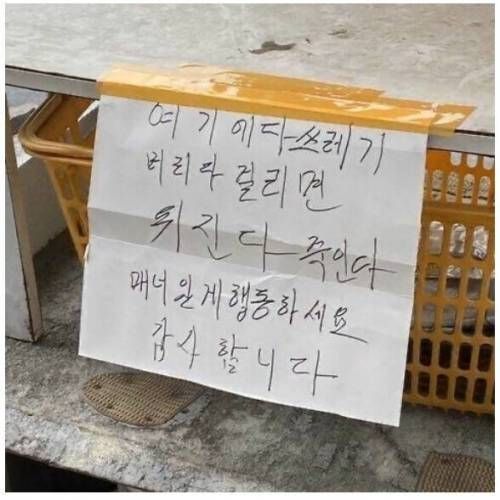 여기에다쓰레기
버리다 걸리면
뒤진다 죽인다
매너있게행동하세요
감사합니다